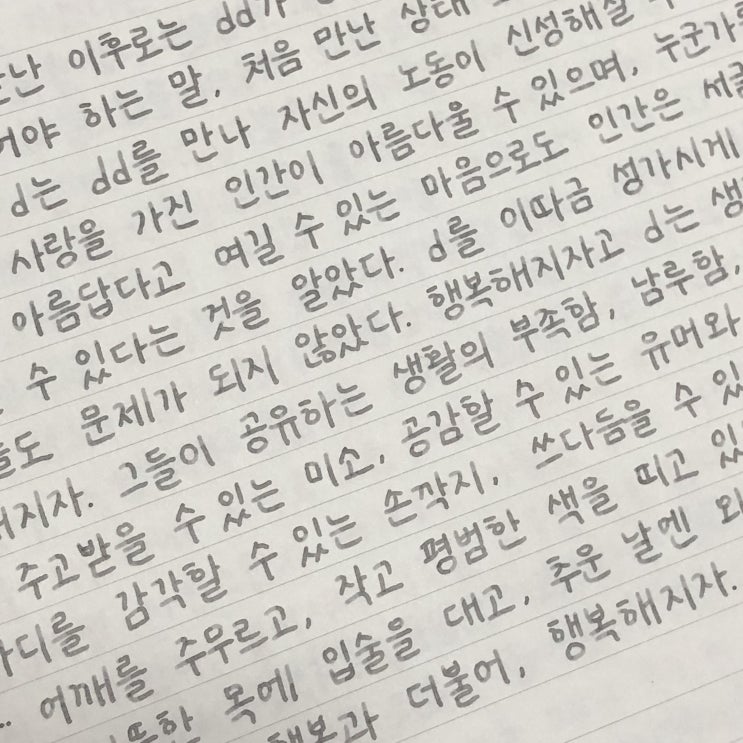 이후로는 dd가
하는 말, 처음 만난 상태
d는 dd를 만나 자신의 노동이 신성해질
사랑을 가진 인간이 아름다울 수 있으며, 누군가를
아름답다고 여길 수 있는 마음으로도 인간은 서글
수 있다는 것을 알았다. d를 이따금 성가시게
문제가 되지 않았다. 행복해지자고 d는 생
그들이 공유하는 생활의 부족함, 남루함,
주고받을 수 있는 미소, 공감할 수 있는 유머와
감각할 수 있는 손깍지, 쓰다듬을 수 있
어깨를 주무르고, 작고 평범한 색을 띠고 있
목에 입술을 대고, 추운 날엔 외
더불어, 행복해지자.